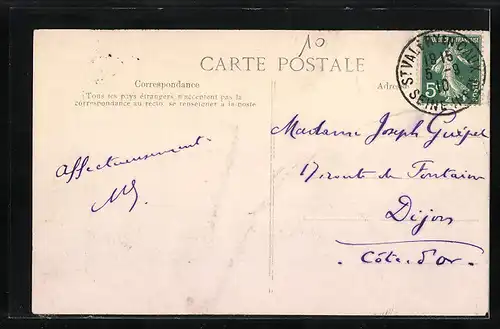 10
CARTE POSTALE
Correspondance
Tous les pays étrangers n'acceptent pas la
correspondance au recto, se renseigner à la poste
Adresse
ST VALERY
18 15
5 - 9
10
SEINE INF
5
Affectueusement
Madame Joseph
17 route de Fontaine
Dijon
Côte-d'or